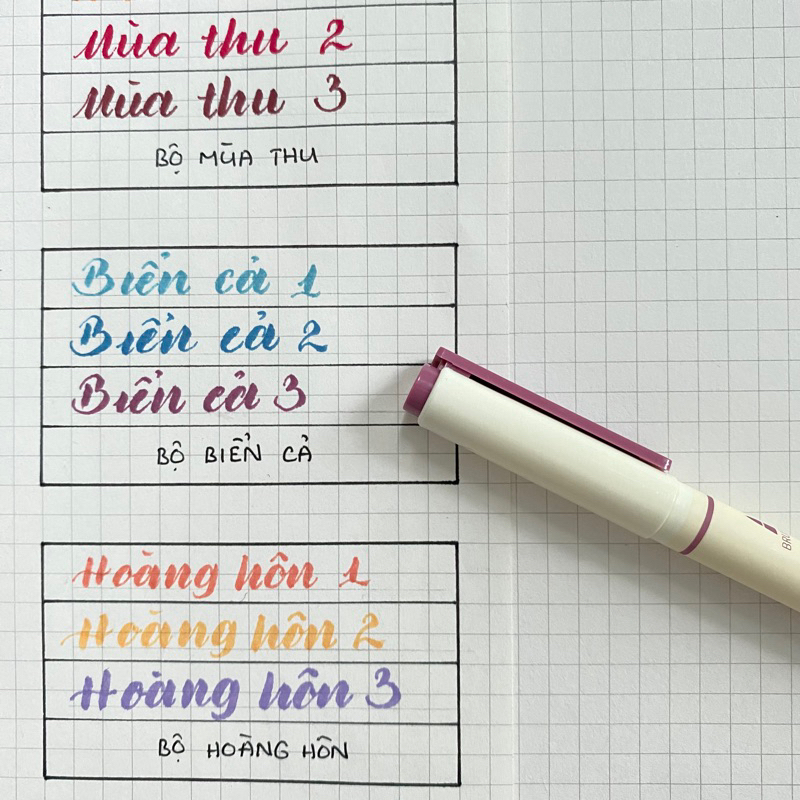 Mùa thu 2
Mùa thu 3
BỘ MÙA THU
Biển cả 1
Biển cả 2
Biển cả 3
BỘ BIỂN CẢ
Hoàng hôn 1
Hoàng hôn 2
Hoàng hôn 3
BỘ HOÀNG HÔN